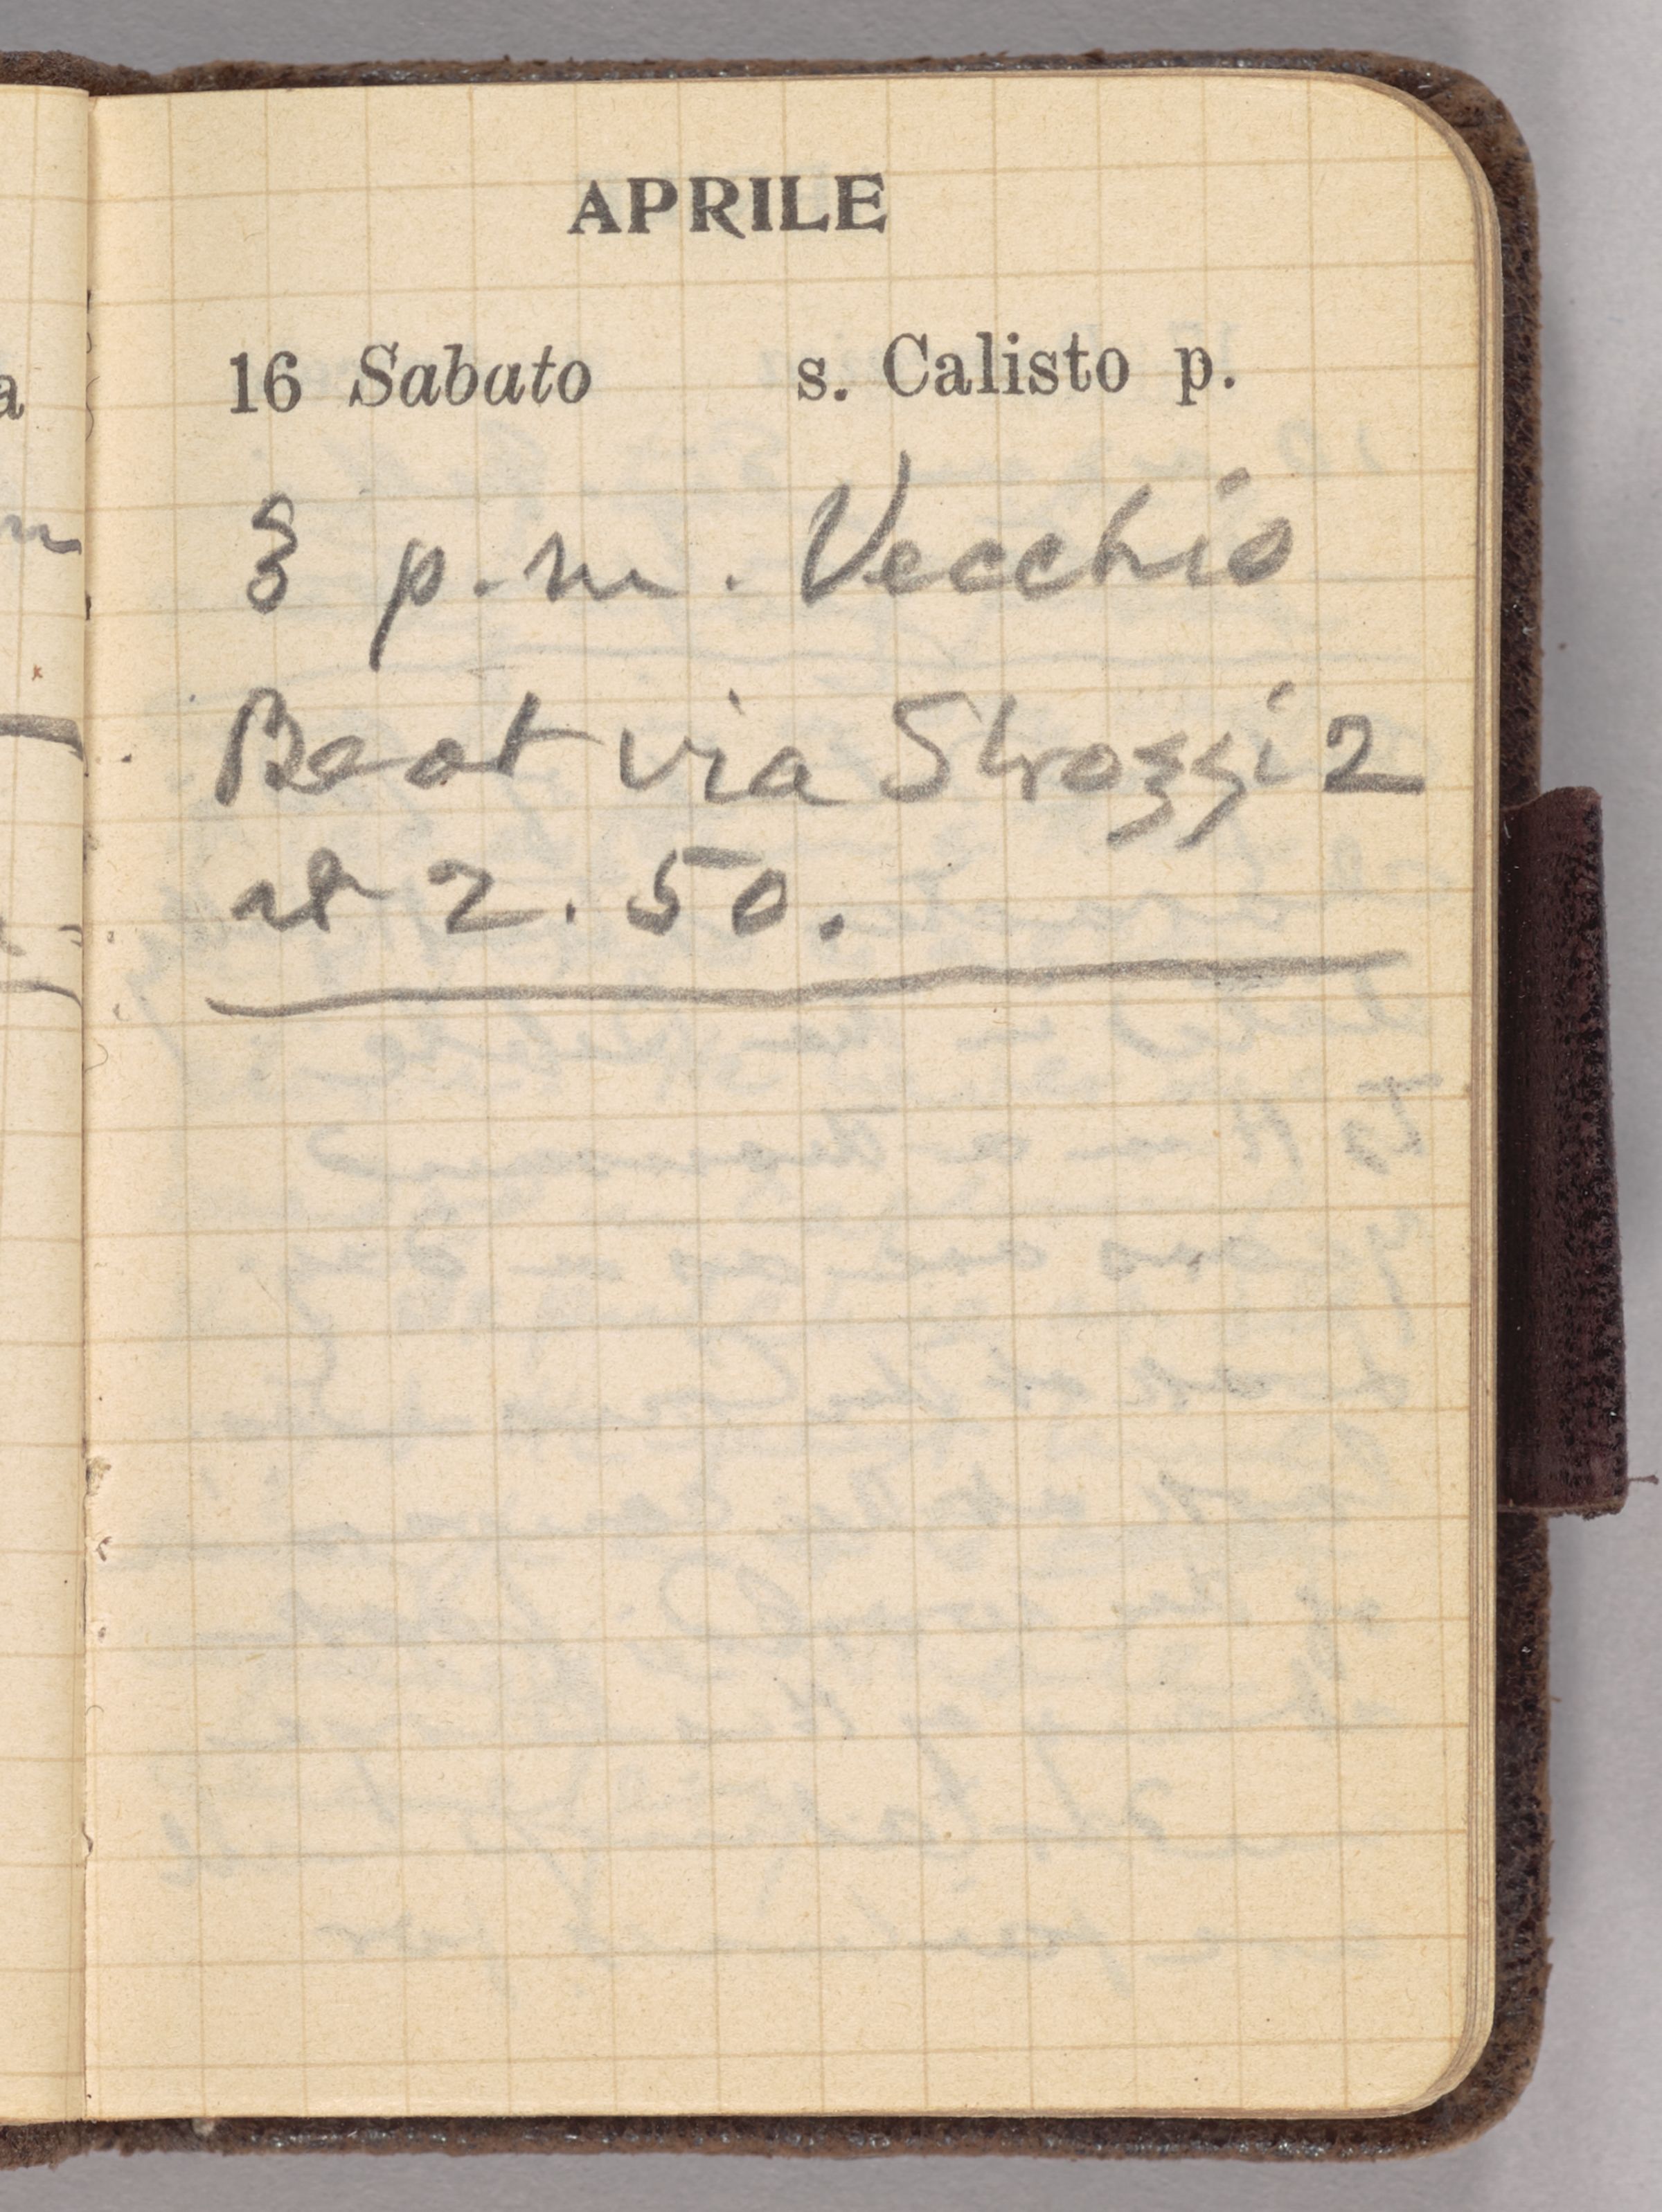 APRILE
16 Sabato s. Calisto p.
3 p.m. Vecchio
Beat via Strozzi 2
at 2.50.